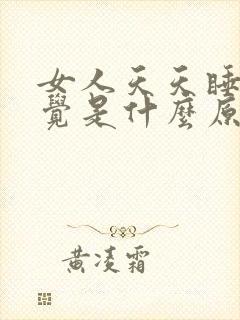 女人天天睡
覺是什麼原
黃凌霜